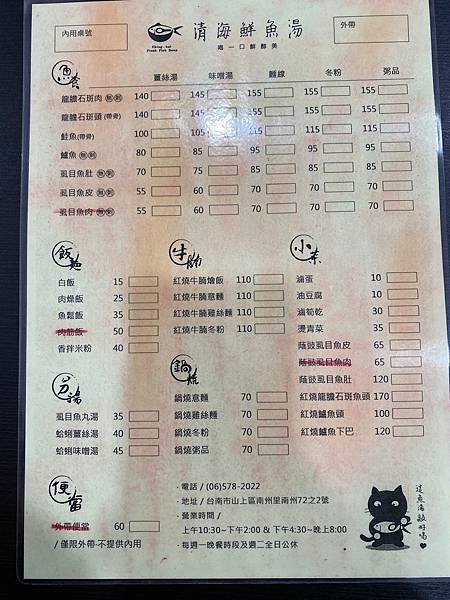 內用桌號
清海鮮魚湯
Ching-hai
Fresh Fish Soup
喝一口鮮醇美
外帶
魚套
薑絲湯 味噌湯 麵線 冬粉 粥品
龍膽石斑肉(無刺) 140 145 155 155 155
龍膽石斑頭(帶骨) 140 145 155 155 155
鮭魚(帶骨) 100 105 115 115 115
鱸魚(無刺) 80 85 95 95 95
虱目魚肚(無刺) 70 75 85 85 85
虱目魚皮(無刺) 55 60 70 70 70
虱目魚肉(無刺) 55 60 70 70 70
飯麵
白飯 15
肉燥飯 25
魚鬆飯 35
肉筋飯 50
香拌米粉 40
牛腩
紅燒牛腩燴飯 110
紅燒牛腩意麵 110
紅燒牛腩雞絲麵 110
紅燒牛腩冬粉 110
小菜
滷蛋 10
油豆腐 10
滷筍乾 30
燙青菜 35
蔭豉虱目魚皮 65
蔭豉虱目魚肉 65
蔭豉虱目魚肚 120
紅燒龍膽石斑魚頭 170
紅燒鱸魚頭 100
紅燒鱸魚下巴 120
另湯
虱目魚丸湯 35
蛤蜊薑絲湯 40
蛤蜊味噌湯 45
鍋燒
鍋燒意麵 70
鍋燒雞絲麵 70
鍋燒冬粉 70
鍋燒粥品 70
便當
外帶便當 60
/ 僅限外帶-不提供內用
· 電話 / (06)578-2022
· 地址 / 台南市山上區南州里南州72之2號
· 營業時間 /
上午10:30~下午2:00 & 下午4:30~晚上8:00
· 每週一晚餐時段及週二全日公休
這魚湯敲好喝